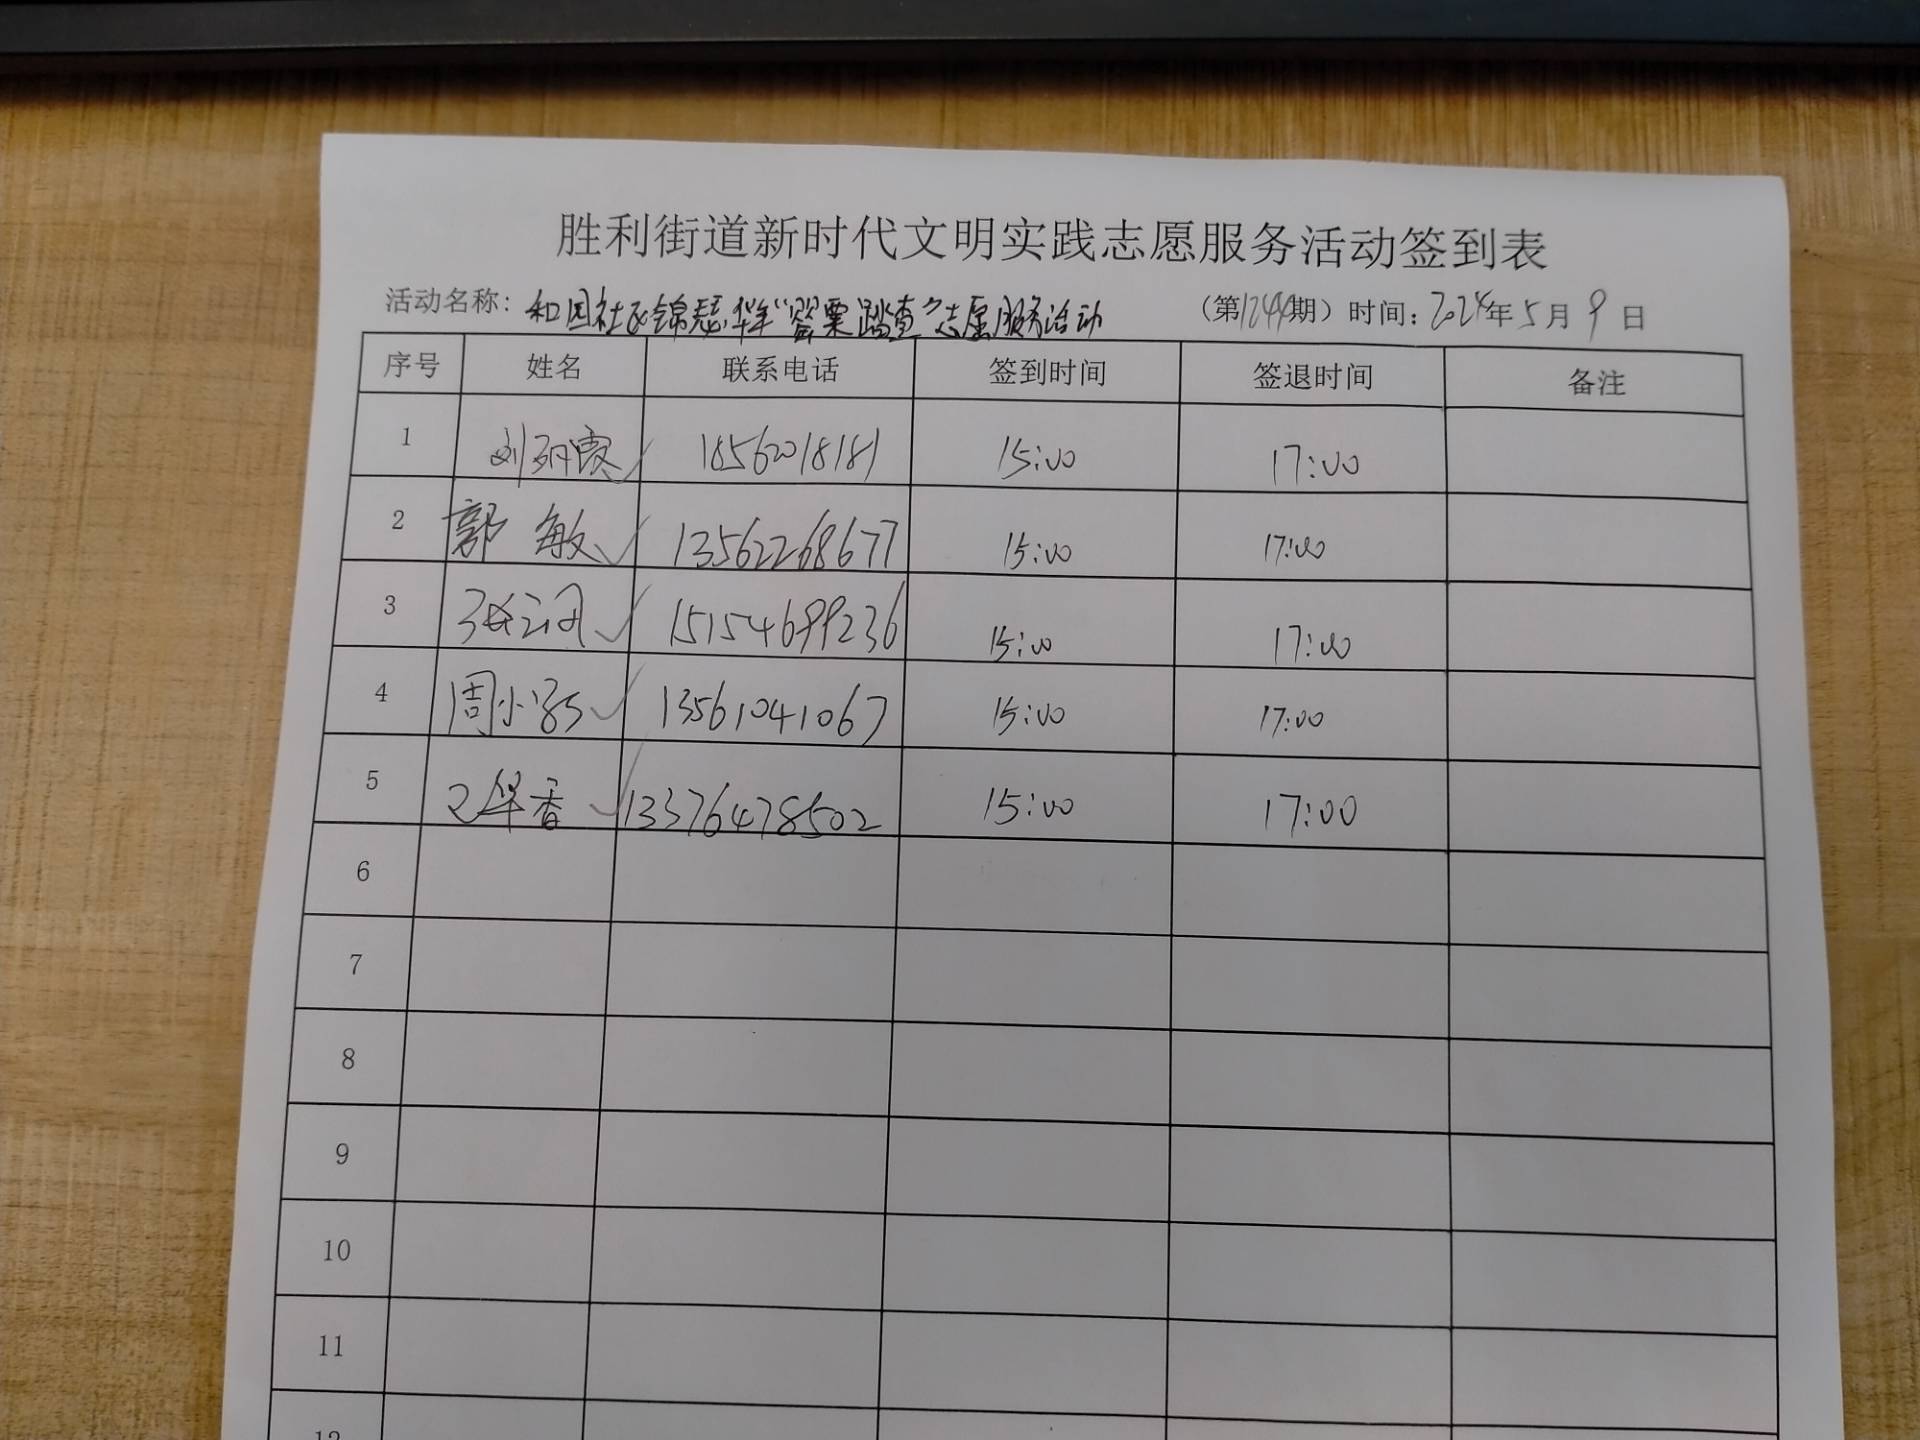 胜利街道新时代文明实践志愿服务活动签到表
活动名称：和园社区锦瑟华年“罂粟踏查”志愿服务活动 （第1244期）时间：2024年5月9日
序号 姓名 联系电话 签到时间 签退时间 备注
1 刘丽霞 18562018181 15:00 17:00
2 郭敏 13562268677 15:00 17:00
3 张 15154699236 15:00 17:00
4 周小 13561041067 15:00 17:00
5 华香 13376478502 15:00 17:00
6
7
8
9
10
11
12